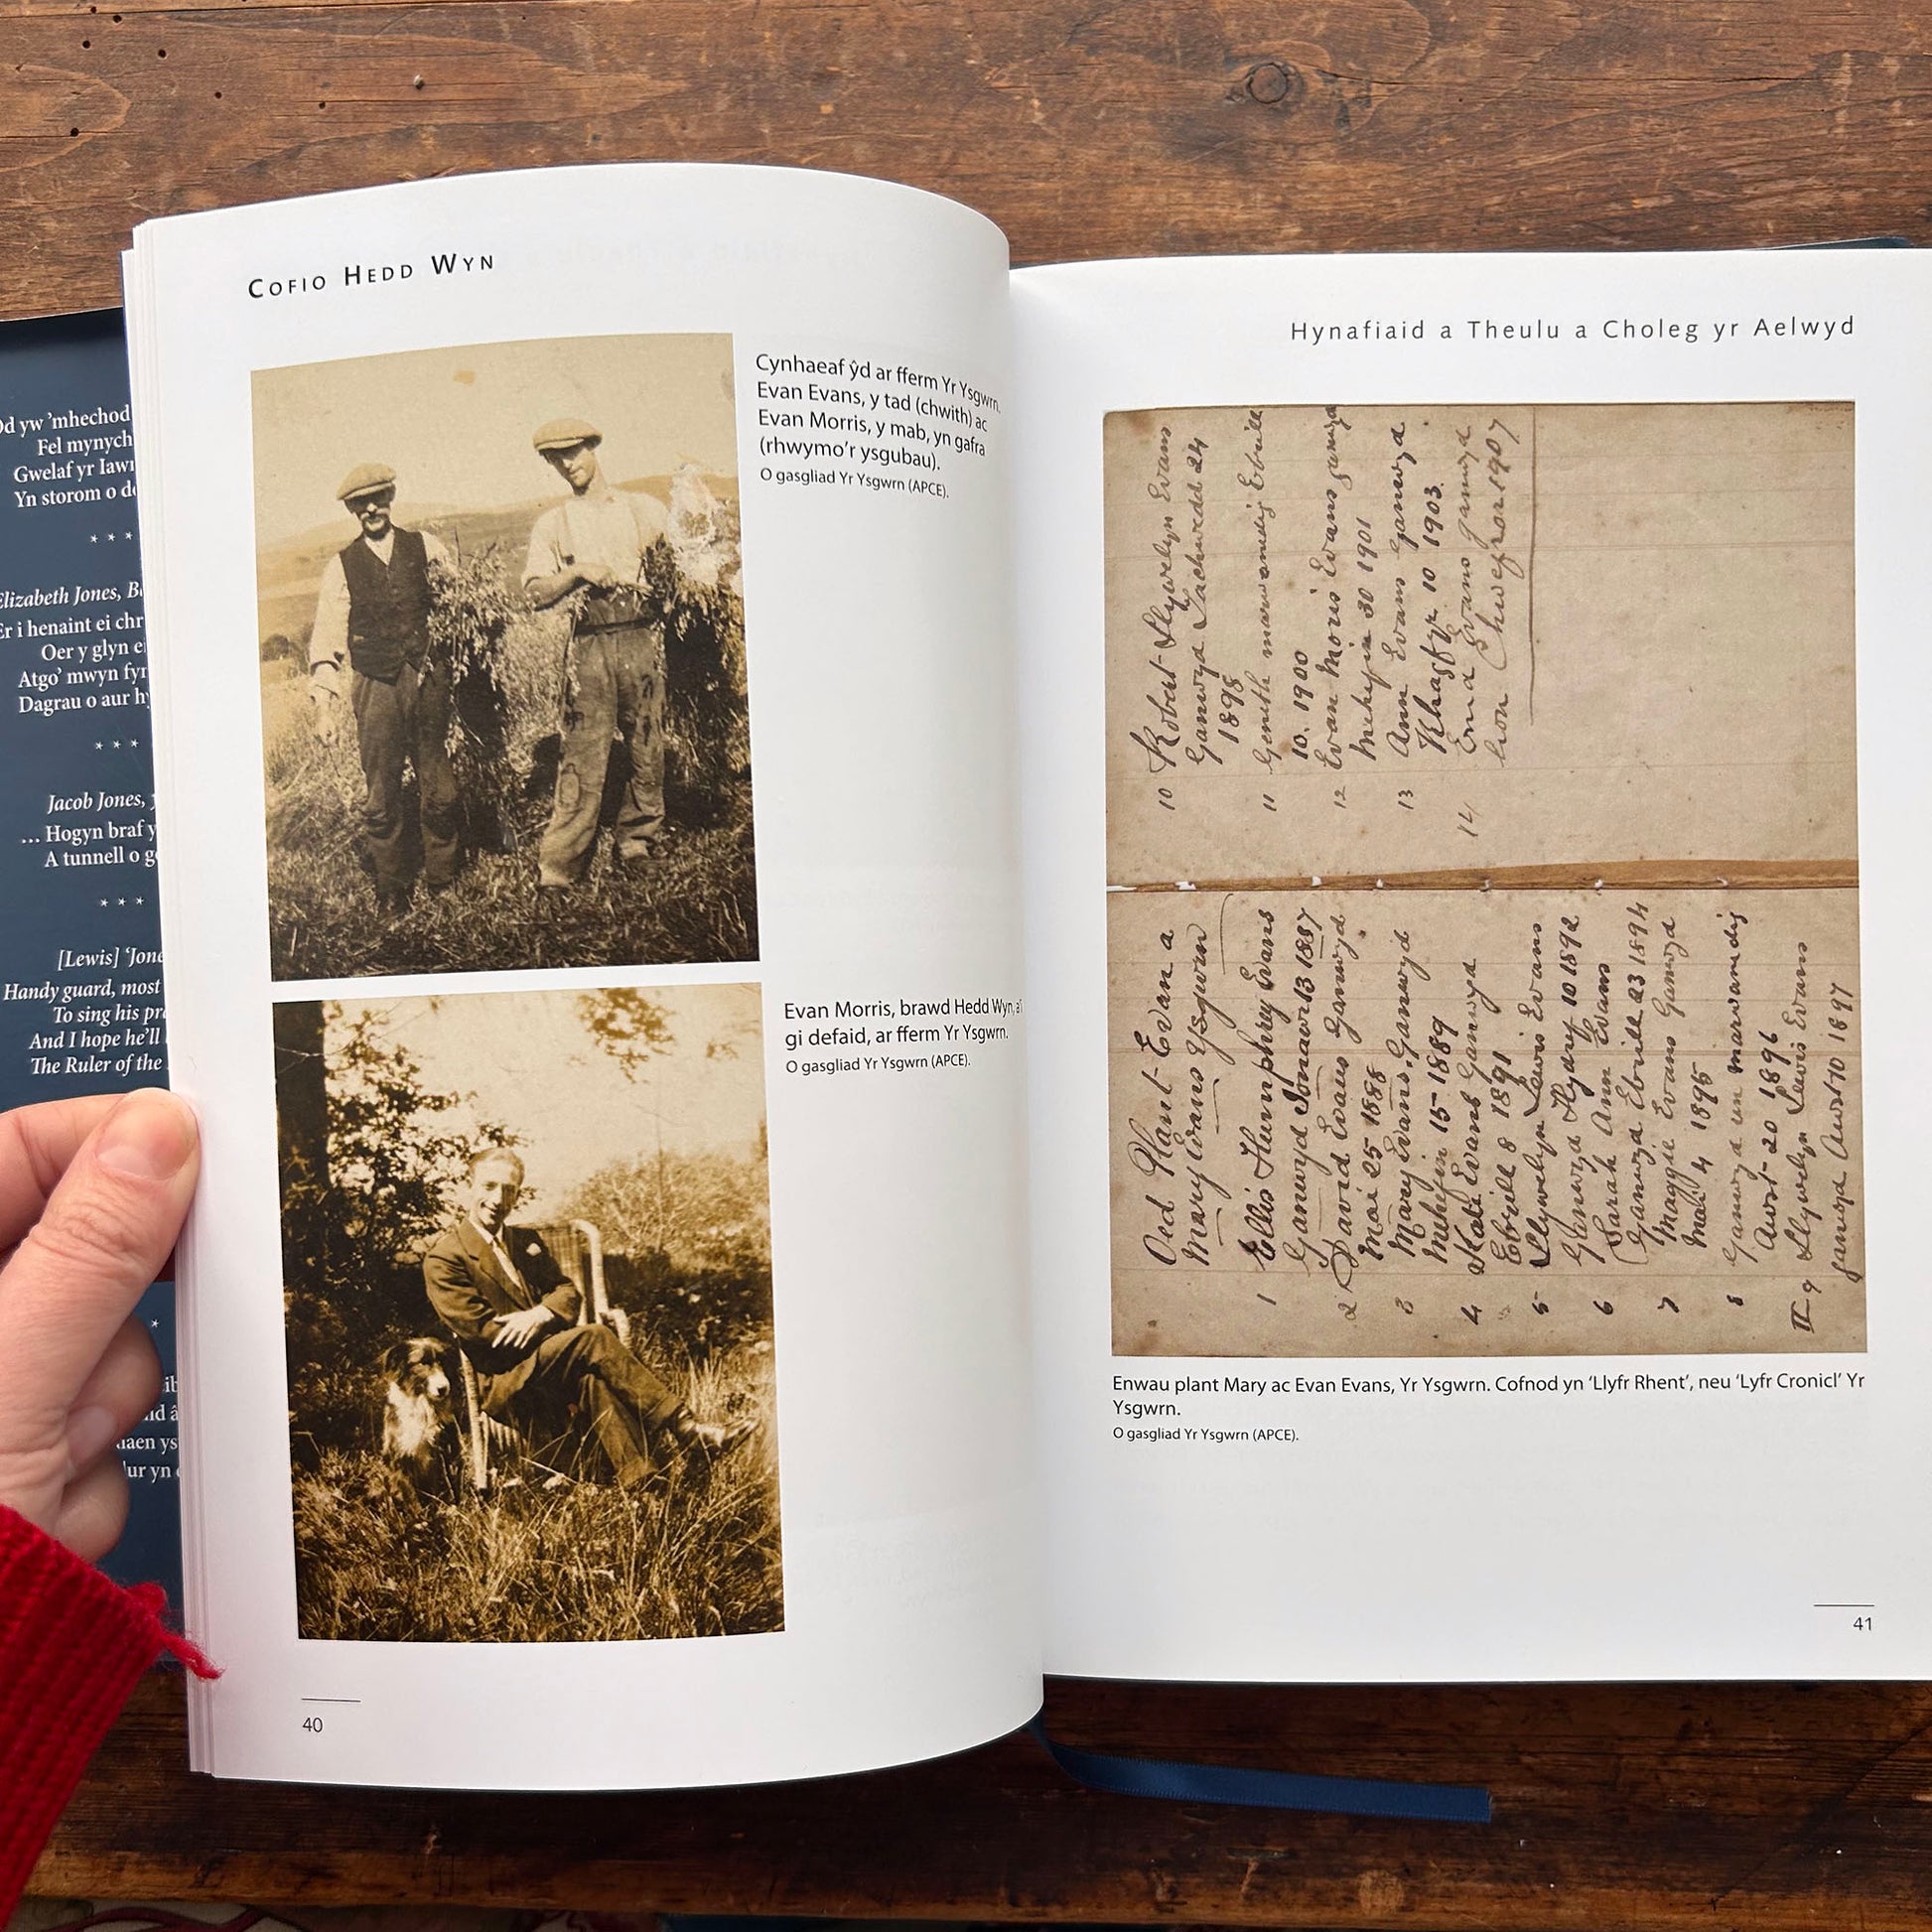 Cofio Hedd Wyn
Cynhaeaf ŷd ar fferm Yr Ysgwrn.
Evan Evans, y tad (chwith) ac
Evan Morris, y mab, yn gafra
(rhwymo'r ysgubau).
O gasgliad Yr Ysgwrn (APCE).
Evan Morris, brawd Hedd Wyn, a'i
gi defaid, ar fferm Yr Ysgwrn.
O gasgliad Yr Ysgwrn (APCE).
40
Hynafiaid a Theulu a Choleg yr Aelwyd
Oed Plant Evan a
Mary Evans Ysgwrn
1 Ellis Humphrey Evans
Ganwyd Ionawr 13 1887
2 David Evans Ganwyd
Mai 25 1888
3 Mary Evans. Ganwyd
Mehefin 15 1889
4 Kate Evans Ganwyd
Ebrill 8 1891
5 Llywelyn Lewis Evans
Ganwyd Hydref 10 1892
6 Sarah Ann Evans
Ganwyd Ebrill 23 1894
7 Maggie Evans Ganwyd
Mai 4 1895
8 Ganwyd un marwanedig
Awst 20 1896
9 Llywelyn Lewis Evans
Ganwyd Awst 10 1897
10 Robert Llywelyn Evans
Ganwyd Tachwedd 24
1898
11 Geneth marwanedig Ebrill
10. 1900
12 Evan Morris Evans ganwyd
Mehefin 30 1901
13 Ann Evans ganwyd
Rhagfyr 10 1903.
14 Enid Evans ganwyd
Chwefror 1907
Enwau plant Mary ac Evan Evans, Yr Ysgwrn. Cofnod yn 'Llyfr Rhent', neu 'Lyfr Cronicl' Yr
Ysgwrn.
O gasgliad Yr Ysgwrn (APCE).
41
yw 'mhechod
Fel mynych
Gwelaf yr
Yn storom o
* * *
Elizabeth Jones,
i henaint ei
Oer y glyn
Atgo' mwyn
Dagrau o aur
* * *
Jacob Jones,
... Hogyn braf y
A tunnell o
* * *
[Lewis]
Handy guard, most
To sing his
And I hope he'll
The Ruler of the
*